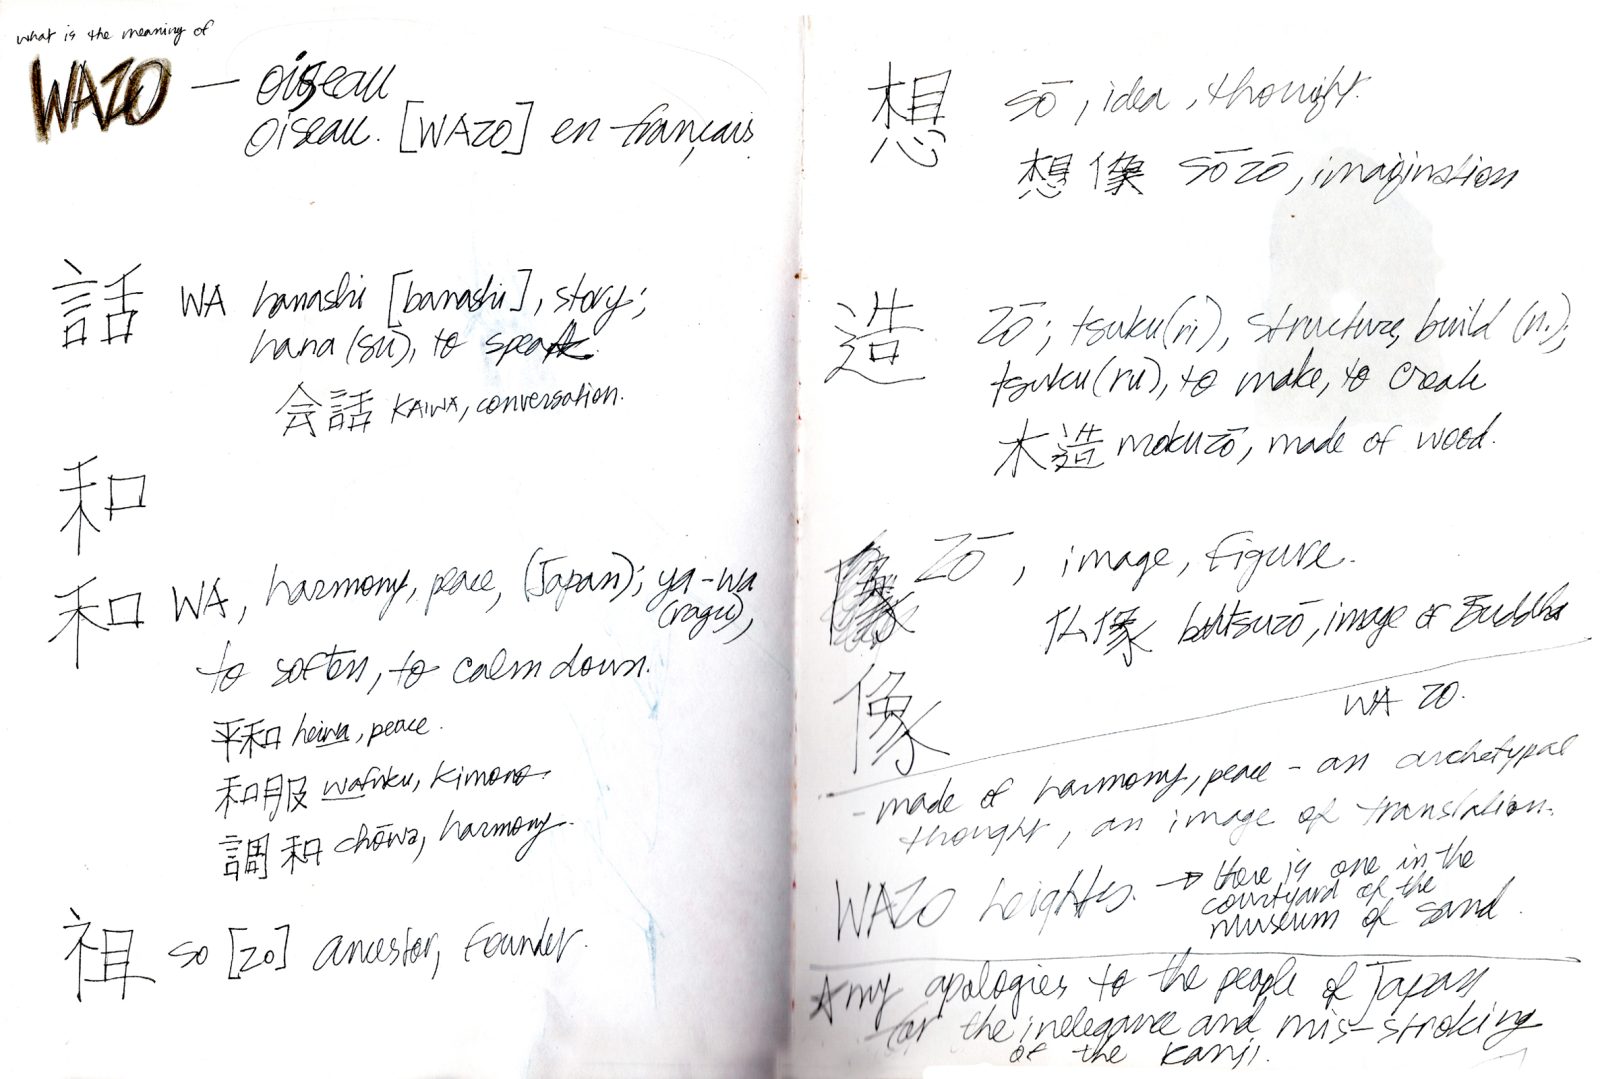 what is the meaning of
WAZO — oiseau
oiseau. [WAZO] en français.
話 WA hanashi [banashi], story;
hana(su), to speak
会話 KAIWA, conversation.
和
和 WA, harmony, peace, (Japan); ya-wa
(ragu),
to soften, to calm down.
平和 heiwa, peace.
和服 wafuku, kimono.
調和 chōwa, harmony.
祖 so [zo] ancestor, founder.
想 sō, idea, thought.
想像 sōzō, imagination
造 zō; tsuku(ri), structure, build (n.);
tsuku(ru), to make, to create
木造 mokuzō, made of wood.
像 zō, image, figure.
仏像 butsuzō, image of Buddha
像
WA ZO.
- made of harmony, peace - an archetypal
thought, an image of translation.
WAZO heights. → there is one in the
courtyard of the
museum of sand.
☆ my apologies to the people of Japan
for the inelegance and mis-stroking
of the kanji.